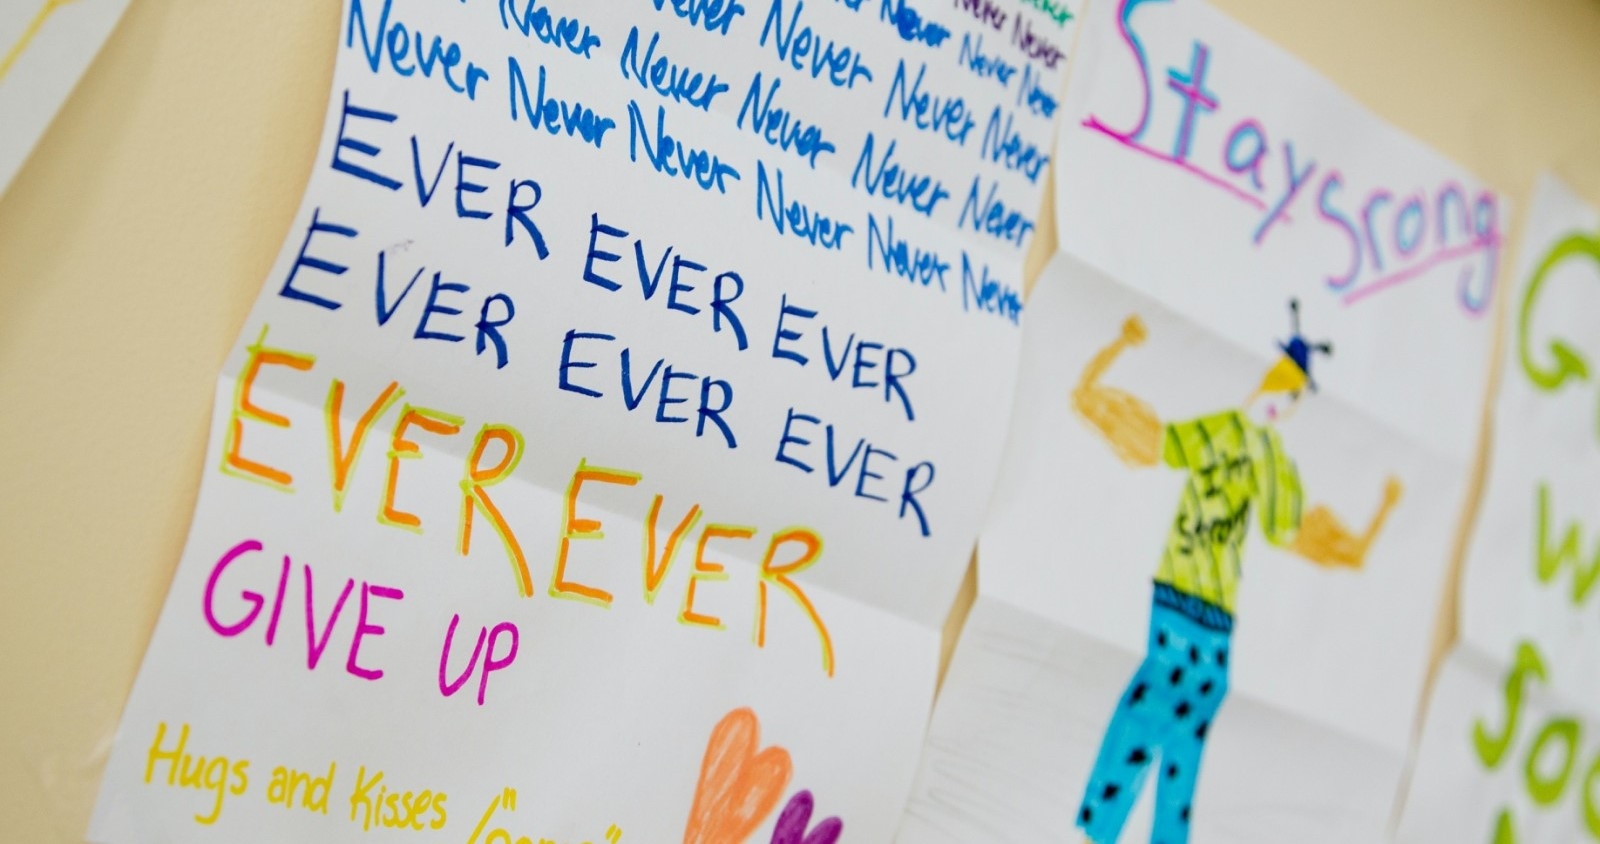 Never Never
Never Never Never
Never Never Never Never
Never Never Never Never Never
Never Never Never Never Never Never
EVER EVER EVER
EVER EVER EVER
EVER EVER
GIVE UP
Hugs and Kisses
Stay Srong
I'm
strong